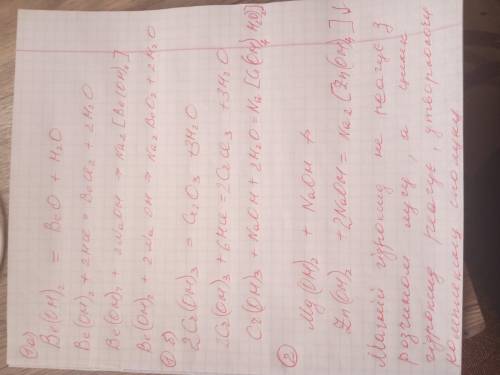 ① а)
Be(OH)₂ = BeO + H₂O
Be(OH)₂ + 2HCl = BeCl₂ + 2H₂O
Be(OH)₂ + 2NaOH = Na₂[Be(OH)₄]
Be(OH)₂ + 2NaOH = Na₂BeO₂ + 2H₂O
① б)
2Cr(OH)₃ = Cr₂O₃ + 3H₂O
2Cr(OH)₃ + 6HCl = 2CrCl₃ + 3H₂O
Cr(OH)₃ + NaOH + 2H₂O = Na[Cr(OH)₄ H₂O)]
②
Mg(OH)₂ + NaOH ↛
Zn(OH)₂ + 2NaOH = Na₂[Zn(OH)₄]↓
Магній гідроксид не реагує з
розчином лугу, а цинк
гідроксид реагує, утворюючи
комплексну сполуку